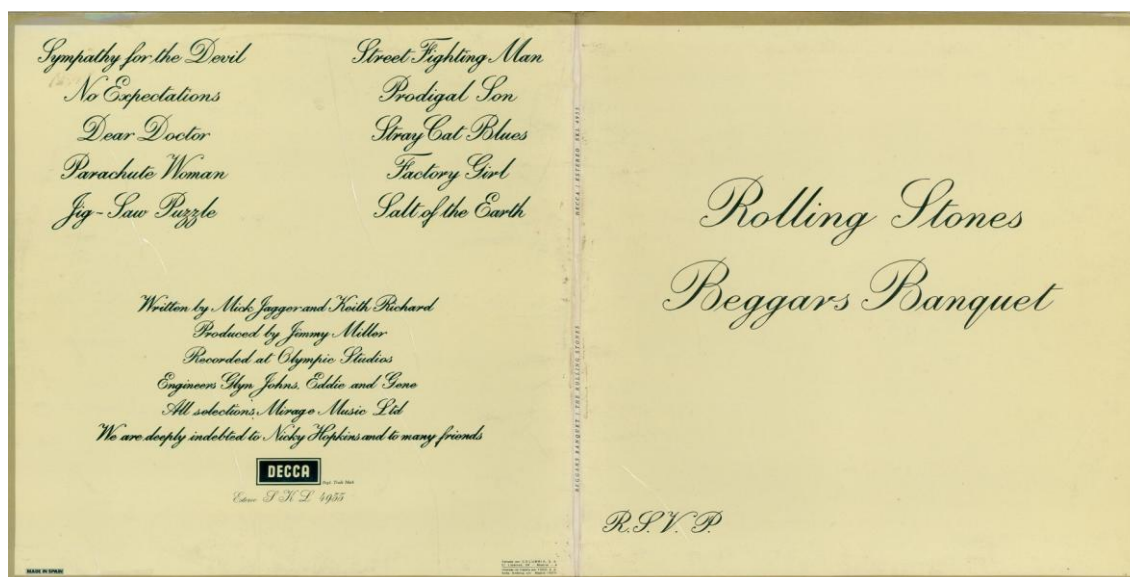 Sympathy for the Devil
No Expectations
Dear Doctor
Parachute Woman
Jig-Saw Puzzle
Street Fighting Man
Prodigal Son
Stray Cat Blues
Factory Girl
Salt of the Earth
Written by Mick Jagger and Keith Richard
Produced by Jimmy Miller
Recorded at Olympic Studios
Engineers Glyn Johns, Eddie and Gene
All selections Mirage Music Ltd
We are deeply indebted to Nicky Hopkins and to many friends
DECCA
Estereo S K L 4955
MADE IN SPAIN
BEGGARS BANQUET / THE ROLLING STONES
DECCA / ESTEREO SKL 4955
Rolling Stones
Beggars Banquet
R.S.V.P.